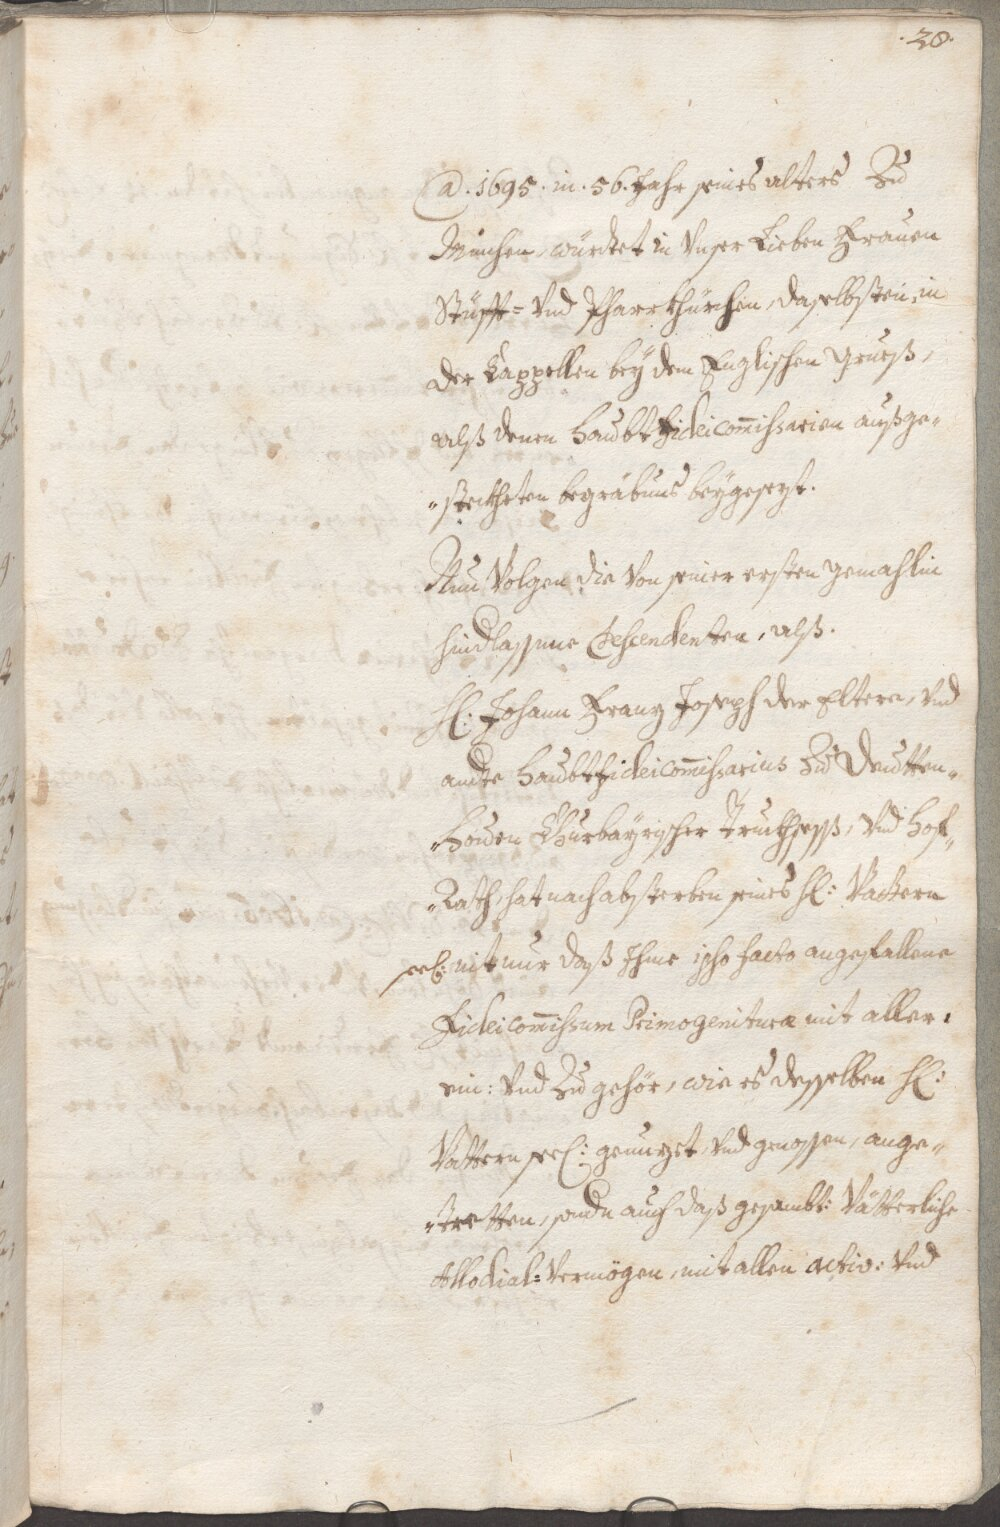 .28.
a. 1695. in. 56. Jahr seines alters Zu
München, würdtet in Vnser Lieben Frauen
Stüfft= Vnd Pfarrkhürchen, daselbsten, in
der Cappellen bey dem Englischen Grueß,
alß denen Haubt Fideicom̄issarien außge„
„steckhten begräbnus beygesezt.
Nun Volgen die Von seiner ersten Gemahlin
hindlassene Descendenten, alß.
H: Johann Franz Joseph der Eltere, Vnd
andte Haubt Fideicom̄issarius Zu Deutten„
„houen Churbayrischer Truchseß, Vnd Hof„
„Rath, hat nach absterben seines H: Vattern
seel: nit nur daß Ihme ipso facto angefallene
Fideicom̄issum Primogenituræ mit aller
ein: Vnd Zugehör, wie es desselben H:
Vattern seel: genuzet, Vnd genossen, ange„
„tretten, sondn auch daß gesambt: Vätterliche
Allodial: Vermögen, mit allen activ: Vnd